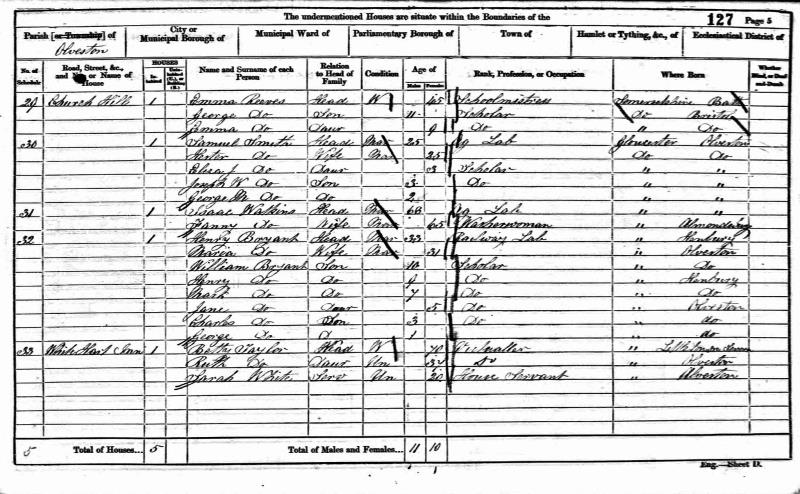 The undermentioned Houses are situate within the Boundaries of the
127 Page 5
Parish [or Township] of
Olveston
City or
Municipal Borough of
Municipal Ward of
Parliamentary Borough of
Town of
Hamlet or Tything, &c., of
Ecclesiastical District of
No. of Schedule
Road, Street, &c., and No. or Name of House
HOUSES
Inhabited
Uninhabited (U.), or Building (B.)
Name and Surname of each Person
Relation to Head of Family
Condition
Age of
Males
Females
Rank, Profession, or Occupation
Where Born
Whether Blind, or Deaf-and-Dumb
29 Church Hill 1 Emma Reeves Head W 45 Schoolmistress Somersetshire Bath
George Do Son 11 Scholar Do Bristol
Emma Do Daur 9 Do " Do
30 1 Samuel Smith Head Mar 25 Ag Lab Gloucester Olveston
Hester Do Wife Mar 25 Do Do
Eliza J Do Daur 3 Scholar " "
Joseph W Do Son 3 Do " "
George M Do Do 2 " "
31 1 Isaac Watkins Head Mar 68 Ag Lab " "
Fanny Do Wife Mar 65 Washerwoman " Almondsbury
32 1 Henry Bryant Head Mar 33 Railway Lab " Henbury
Maria Do Wife Mar 31 " Olveston
William Bryant Son 10 Scholar " Do
Henry Do Do 9 Do " Henbury
Mark Do Do 7 Do " Do
Jane Do Daur 5 Do " Olveston
Charles Do Son 3 Do " do
George Do 1 " do
33 White Hart Inn 1 Betty Taylor Head W 70 Victualler "
Ruth Do Daur Un 32 Do " Olveston
Sarah White Serv Un 20 House Servant " Alveston
5 Total of Houses... 5 Total of Males and Females... 11 10
Eng.—Sheet D.